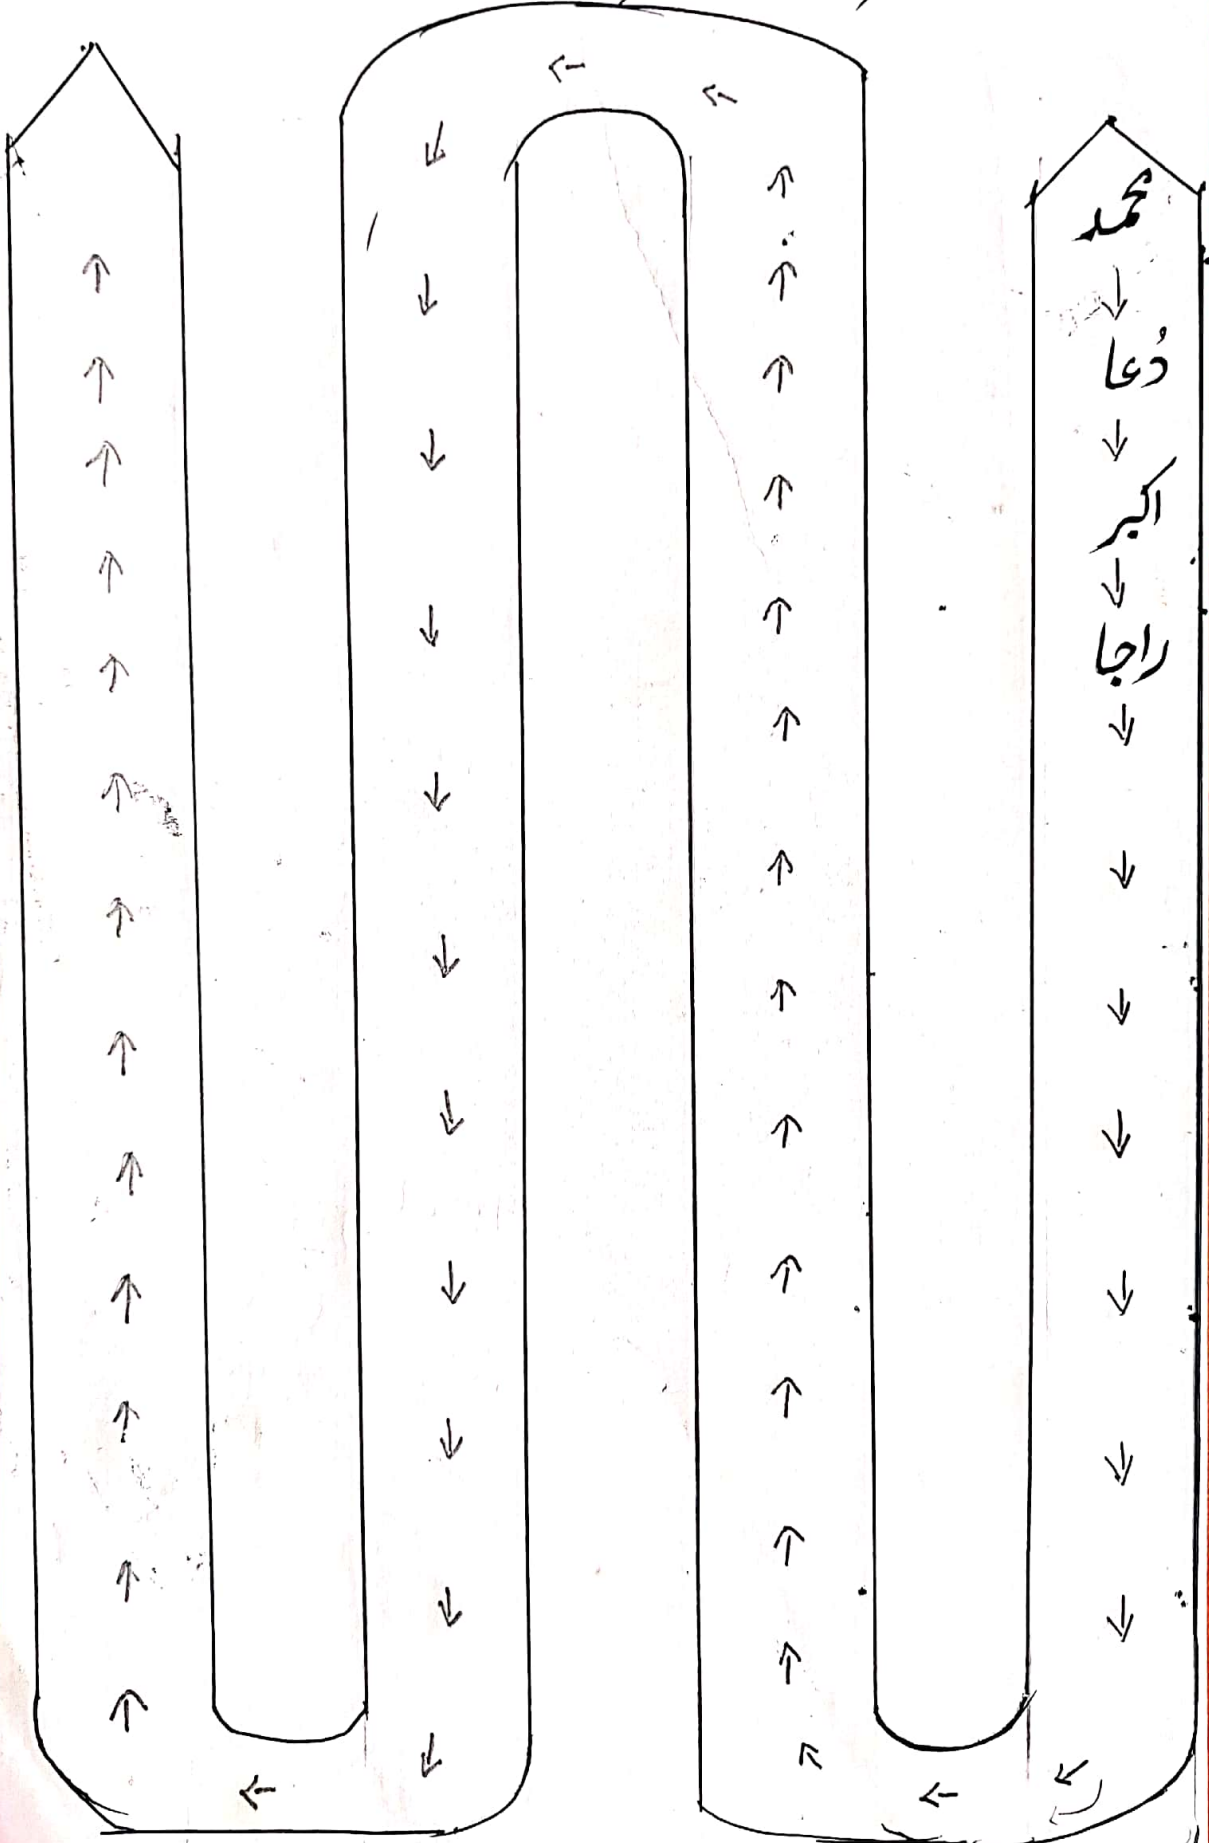 محمد
دُعا
اکبر
راجا